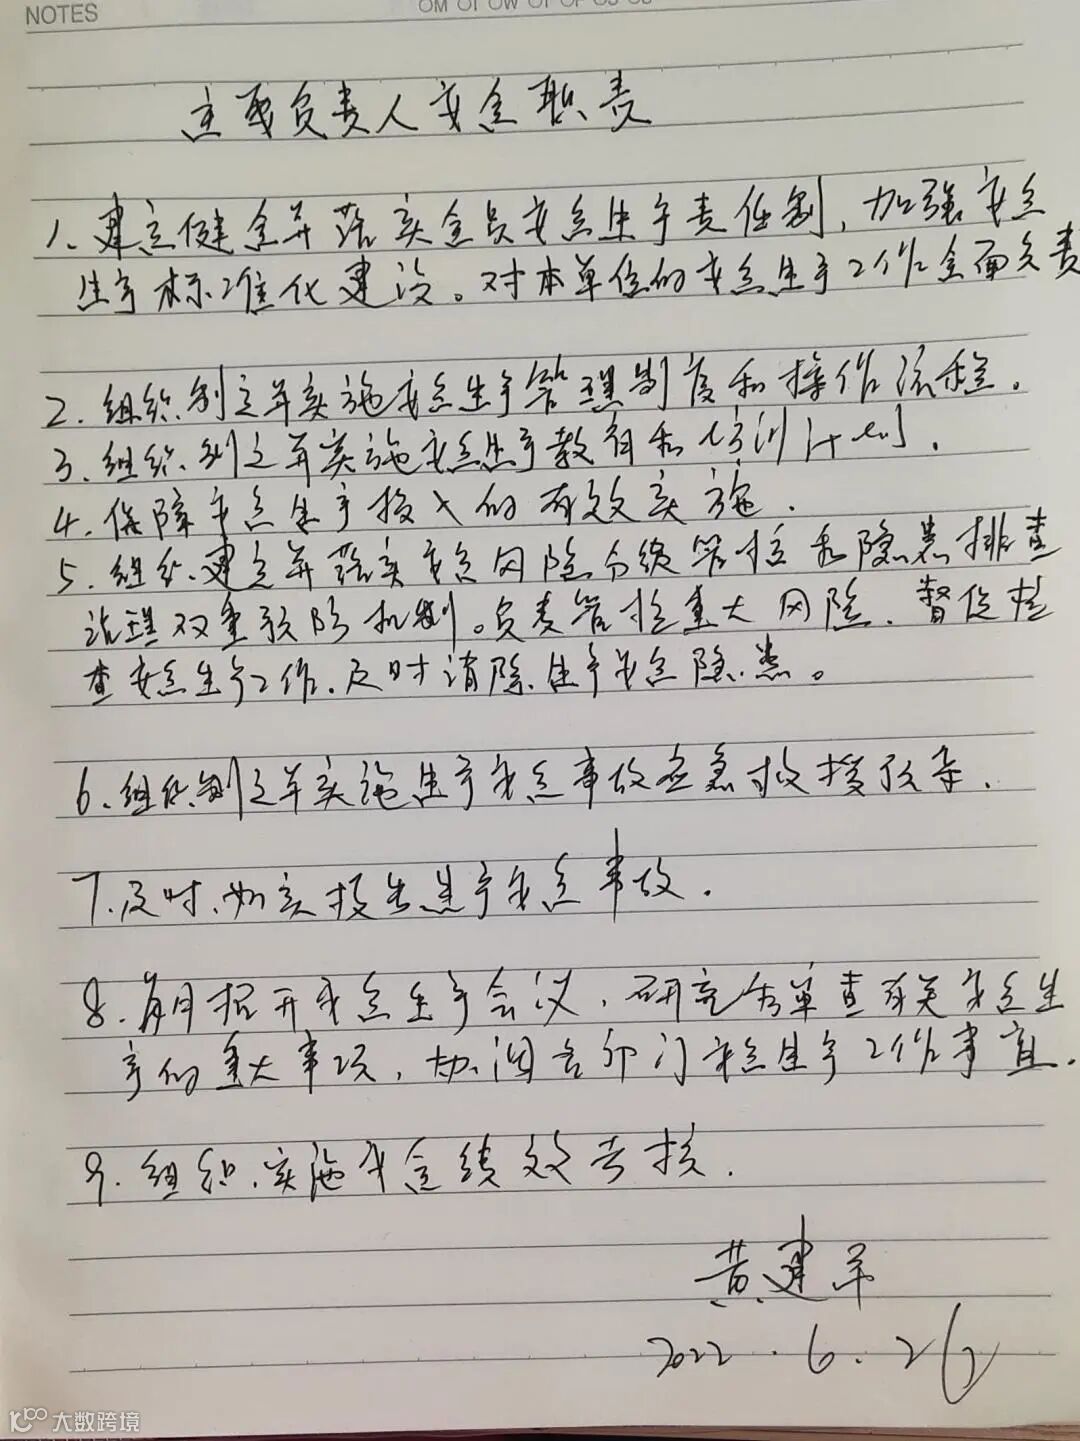 NOTES
主要负责人安全职责
1. 建立健全并落实全员安全生产责任制，加强安全
生产标准化建设。对本单位的安全生产工作全面负责
2. 组织制定并实施安全生产管理制度和操作流程.
3. 组织制定并实施安全生产教育和培训计划.
4. 保障安全生产投入的有效实施.
5. 组织建立并落实安全风险分级管控和隐患排查
治理双重预防机制。负责管控重大风险、督促检
查安全生产工作、及时消除生产安全隐患。
6. 组织制定并实施生产安全事故应急救援预案.
7. 及时、如实报告生产安全事故.
8. 每月招开安全生产会议，研究审查有关安全生
产的重大事项，协调各部门安全生产工作事宜.
9. 组织实施安全绩效考核.
黄建军
2022.6.26
大数跨境